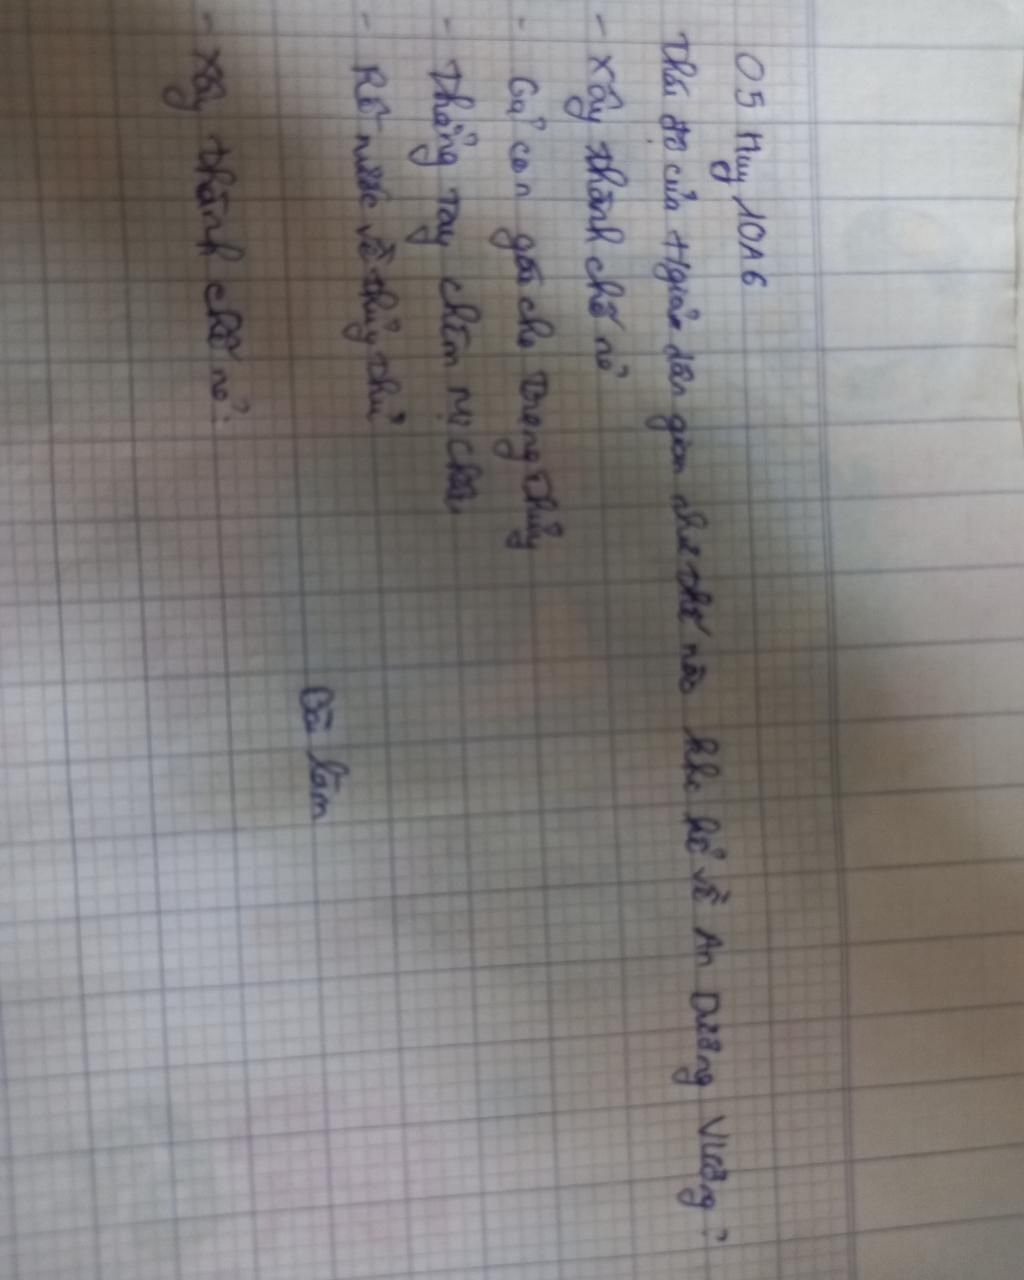 05 Huy 10A6
Thái độ của tgian dân gian như thế nào khi kể về An Dương Vương?
- Xây thành chế nỏ
- Gả con gái cho Trọng Thủy
- Thẳng tay chém Mị Châu
- Rẽ nước về thủy phủ
Bài làm
- Xây thành chế nỏ: